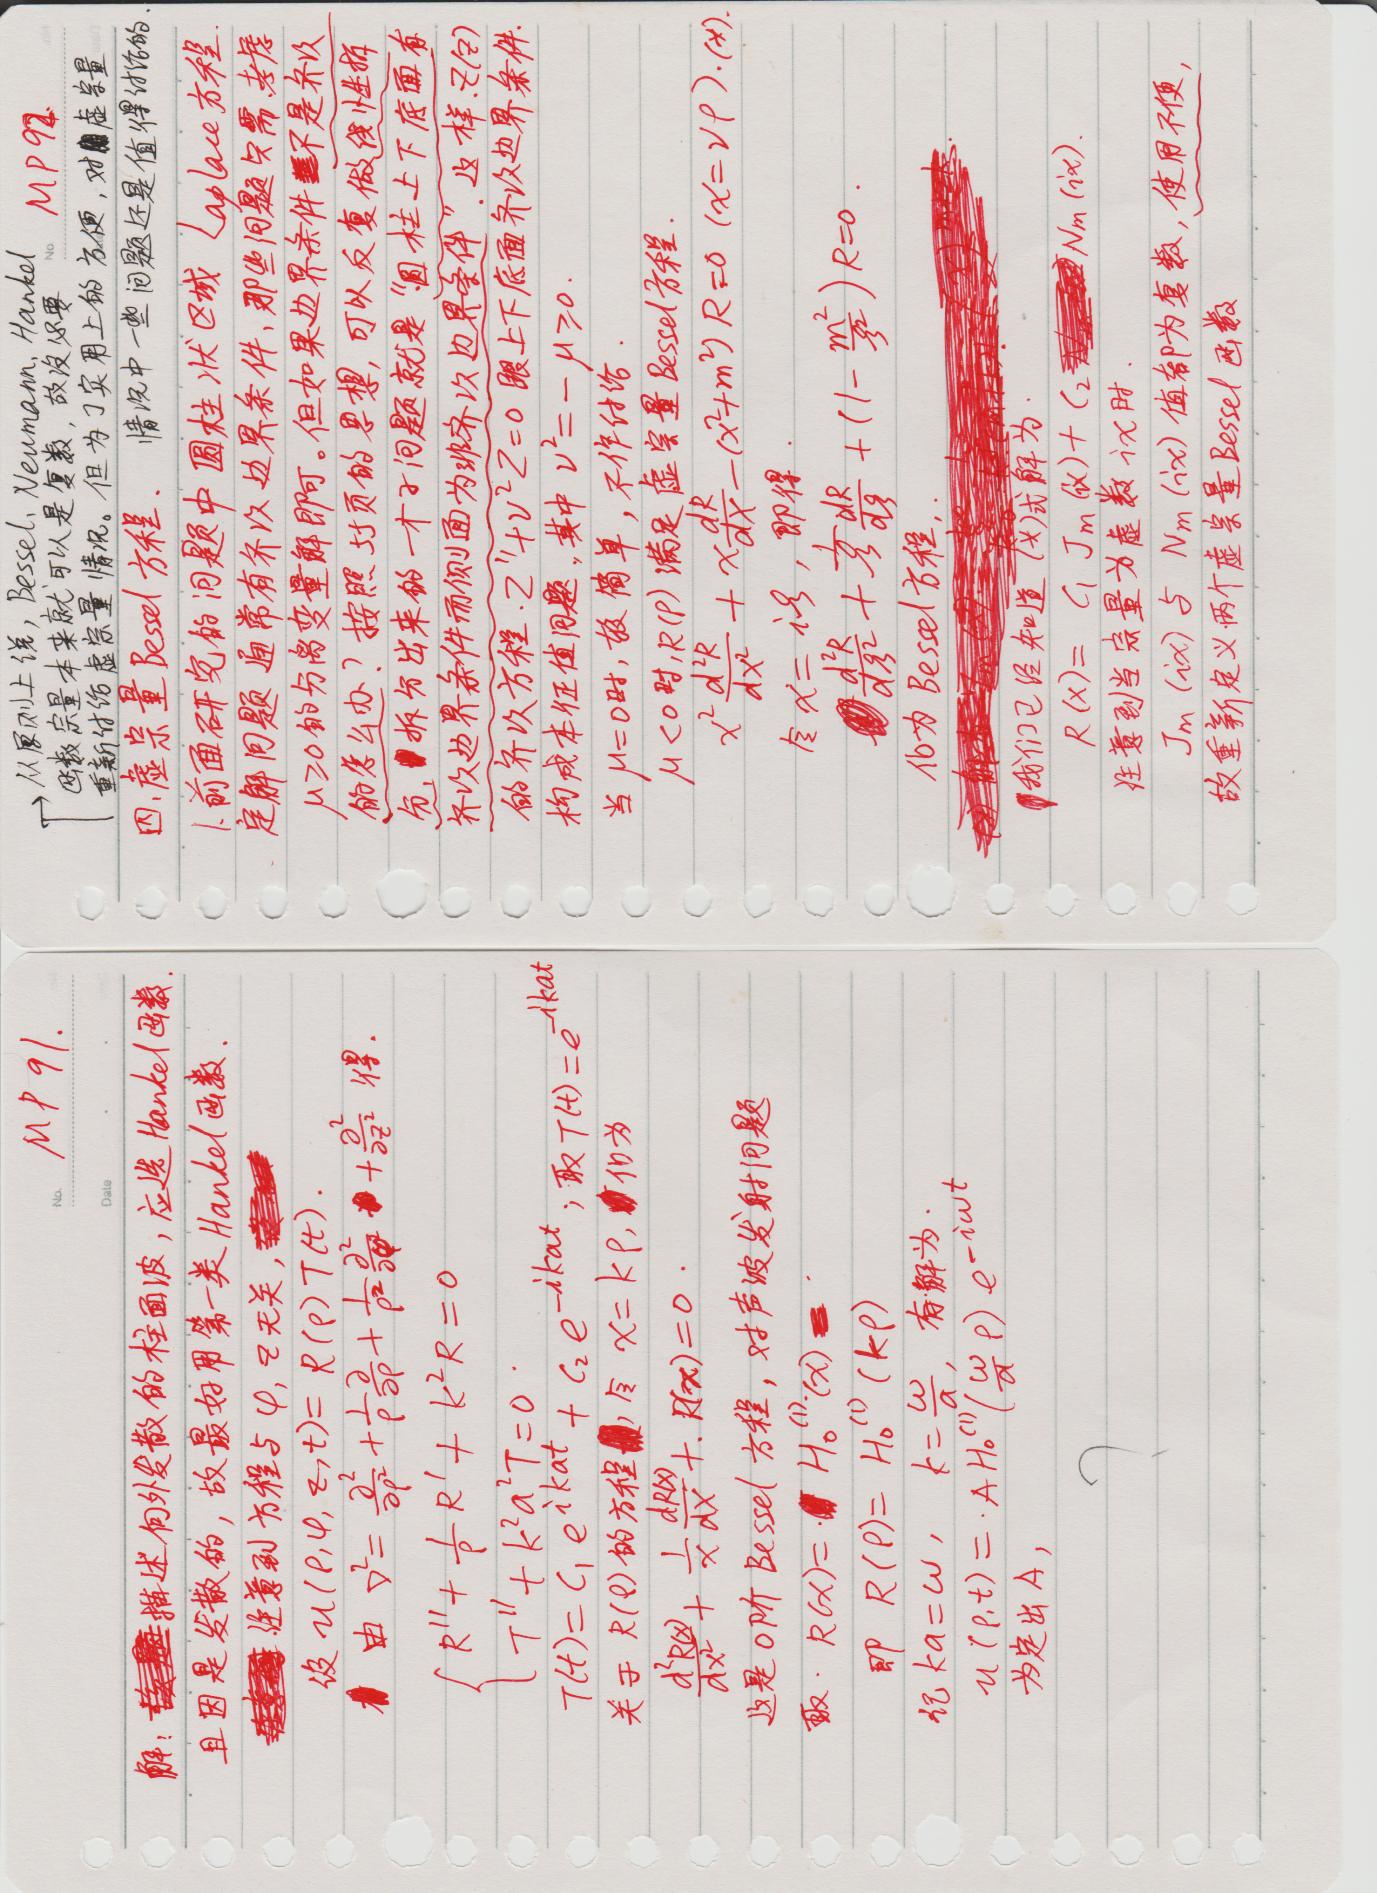 MP 91.
No.
Date
解: 描述向外发散的柱面波, 应选 Hankel 函数.
且因是发散的, 故最好用第一类 Hankel 函数.
注意到方程与 φ, z 无关,
设 u(ρ,φ,z,t)= R(ρ)T(t).
由 ∇²= ∂²/∂ρ² + 1/ρ ∂/∂ρ + 1/ρ² ∂²/∂φ² + ∂²/∂z² 得.
R'' + 1/ρ R' + k²R = 0
T'' + k²a²T = 0.
T(t)= C₁ e^{ikat} + C₂ e^{-ikat}; 取 T(t)= e^{-ikat}
关于 R(ρ) 的方程, 令 x=kρ, 化为
d²R(x)/dx² + 1/x dR(x)/dx + R(x)=0.
这是0阶 Bessel 方程, 对声波发射问题
取. R(x)= H₀⁽¹⁾(x)
即 R(ρ)= H₀⁽¹⁾(kρ)
记 ka=ω, k=ω/a, 有解为.
u(ρ,t)= A H₀⁽¹⁾(ω/a ρ) e^{-iωt}
为定出 A,
?
→从原则上说, Bessel, Neumann, Hankel
No.
MP 92
函数宗量本来就可以是复数, 故没必要
重新讨论虚宗量情况。但为了实用上的方便, 对虚宗量
情况中一些问题还是值得讨论的.
四. 虚宗量 Bessel 方程.
1. 前面研究的问题中圆柱状区域 Laplace 方程.
定解问题通常有齐次边界条件, 那些问题只需考虑
μ≥0 的分离变量解即可。但如果边界条件不是齐次
的怎么办? 按照55页的思想, 可以反复做线性拆
分, 拆分出来的一个子问题就是“圆柱上下底面有
齐次边界条件而侧面为非齐次边界条件”. 这样 Z(z)
的齐次方程 Z''+ν²Z=0 跟上下底面齐次边界条件.
构成本征值问题, 其中 ν²=-μ≥0.
当 μ=0时, 故简单, 不作讨论.
μ<0时, R(ρ) 满足虚宗量 Bessel 方程.
x² d²R/dx² + x dR/dx -(x²+m²) R=0 (x=νρ). (*).
令 x= iξ, 即得.
d²R/dξ² + 1/ξ dR/dξ + (1- m²/ξ²) R=0.
化为 Bessel 方程,.
我们已经知道 (*)式解为.
R(x)= C₁ Jm(ix)+ C₂ Nm(ix).
注意到当宗量为虚数 ix 时.
Jm(ix) 与 Nm(ix) 值都为复数, 使用不便,
故重新定义两个虚宗量 Bessel 函数